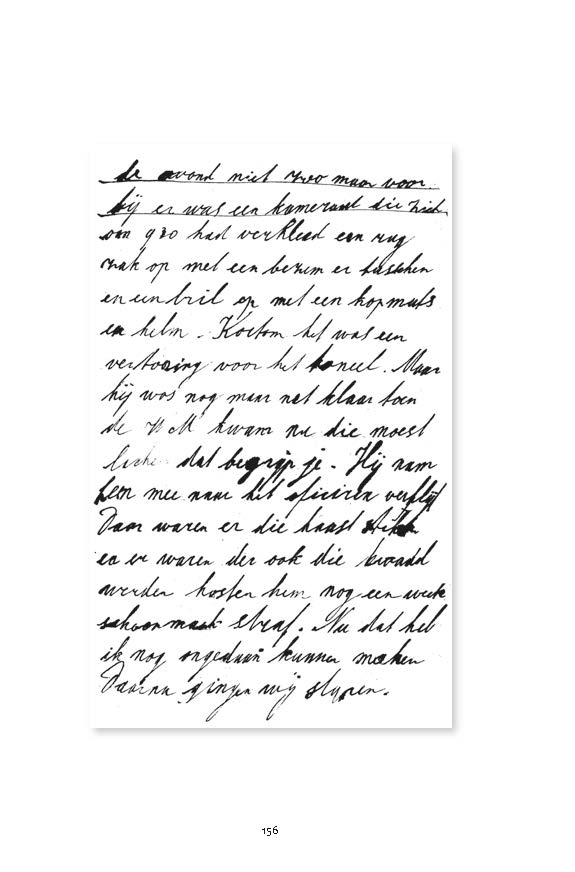 de avond niet zoo maar voor
bij er was een kameraad die zich
om 930 had verkleed een rug
zak op met een bezem er tusschen
en een bril op met een kopmuts
en helm. Kortom het was een
vertooning voor het toneel. Maar
hij was nog maar net klaar toen
de WM kwam nu die moest
lache dat begrijp je. Hij nam
hem mee naar het oficiren verflijf
Daar waren er die haast stikten
en er waren der ook die kwaad
werden kosten hem nog een week
schoonmaak straf. Nu dat heb
ik nog ongedaan kunnen maken
Daarna gingen wij slapen.
156